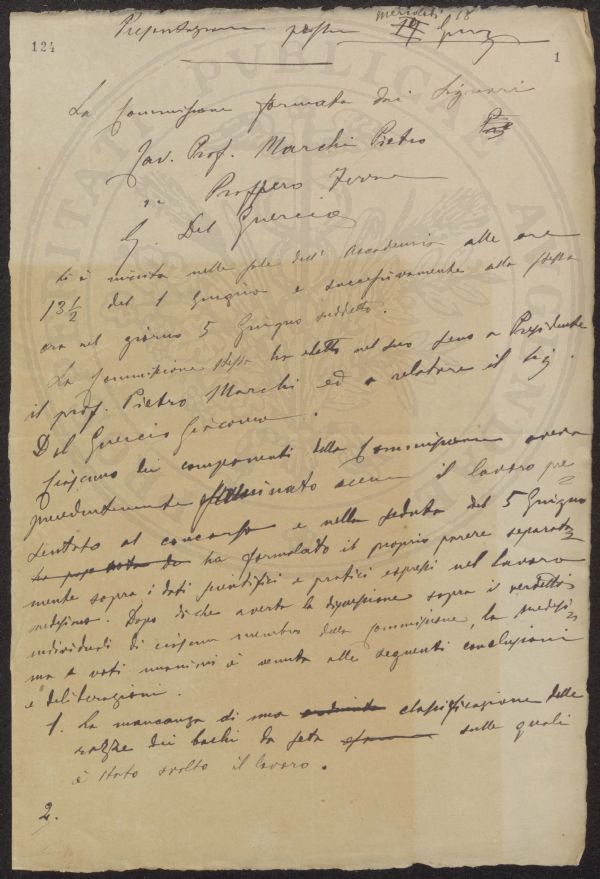 mercoledì 18
124
1
La Commissione formata dai Signori
Cav. Prof. Marchi Pietro
" Prospero
G. Del Guercio
si è riunita nelle sale dell' Accademia alle ore
13 1/2 del 1 Giugno e successivamente alla stessa
ora nel giorno 5 Giugno suddetto.
La Commissione stessa ha eletto nel suo seno a Presidente
il prof. Pietro Marchi ed a relatore il Sig.
Del Guercio Giacomo.
Ciascuno dei componenti della Commissione aveva
precedentemente esaminato il lavoro pre
sentato al concorso e nella seduta del 5 Giugno
ha formulato il proprio parere separata
mente sopra i dati scientifici e pratici espressi nel lavoro
medesimo. Dopo di che aperta la discussione sopra il verdetto
individuale di ciascun membro della Commissione, la medesi
ma a voti unanimi è venuta alle seguenti conclusioni
e deliberazioni.
1. La mancanza di una classificazione delle
razze dei bachi da seta sulle quali
è stato svolto il lavoro.
2.